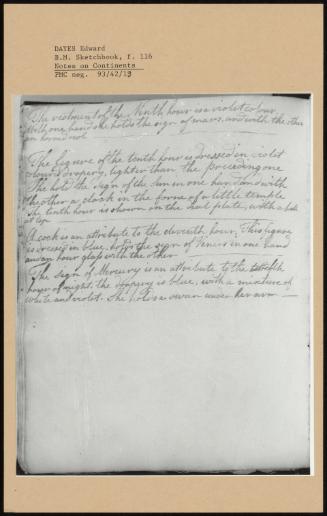 DAYES Edward
B.M. Sketchbook, f. 116
Notes on Continents
PMC neg. 93/42/13
The vestment of the Ninth hour is a violet colour
With one hand she holds the sign of mars, and with the other
an
The figure of the tenth hour is dressed in violet
colour'd drapery, lighter than the preceeding one
She hold the sign of the sun in one hand and with
the other a clock in the form of a little temple
The tenth hour is shown on the dial plate, with a
at top
A cock is an attribute to the eleventh hour, This figure
is dressed in blue, holds the sign of Venus in one hand
and an hour glass with the other
The sign of Mercury is an attribute to the twelfth
hour of night, the drapery is blue, with a mixture of
white and violet. She holds a swan under her arm —